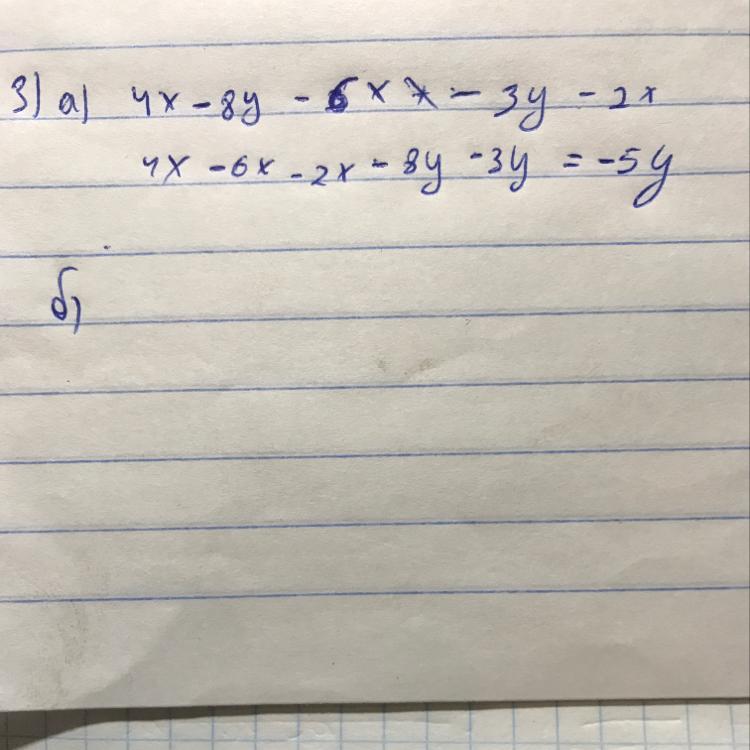 3) а) 4x - 8y - 6x - 3y - 2x
4x - 6x - 2x - 8y - 3y = -5y
б)